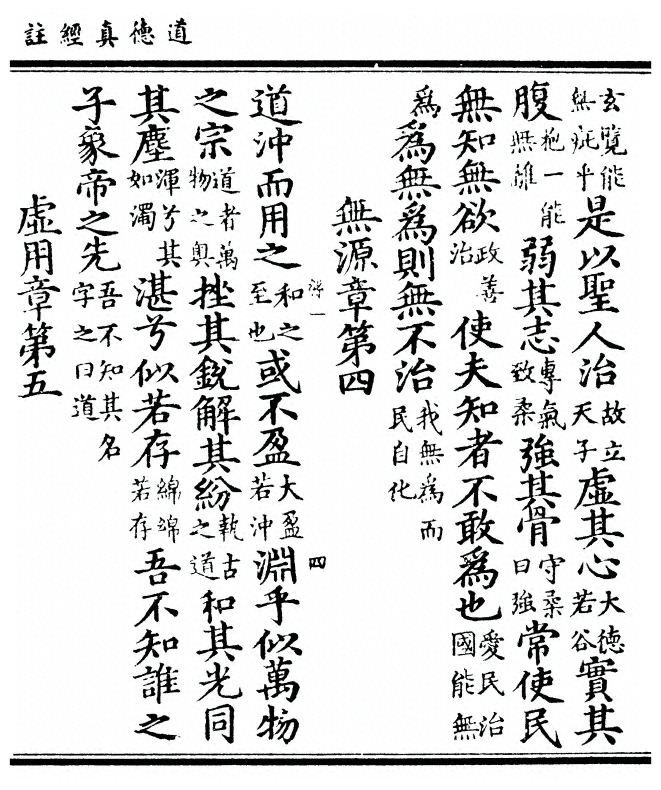 道德真經註
玄覽能無疵乎是以聖人治故立天子虛其心大德若谷實其
腹抱一能無離弱其志專氣致柔強其骨守柔日強常使民
無知無欲政善治使夫知者不敢爲也愛民治國能無
爲爲無爲則無不治我無爲而民自化
無源章第四
一 四
道沖而用之和之至也或不盈大盈若沖淵乎似萬物
之宗道者萬物之奧挫其銳解其紛執古之道和其光同
其塵渾兮其如濁湛兮似若存綿綿若存吾不知誰之
子象帝之先吾不知其名字之曰道
虛用章第五